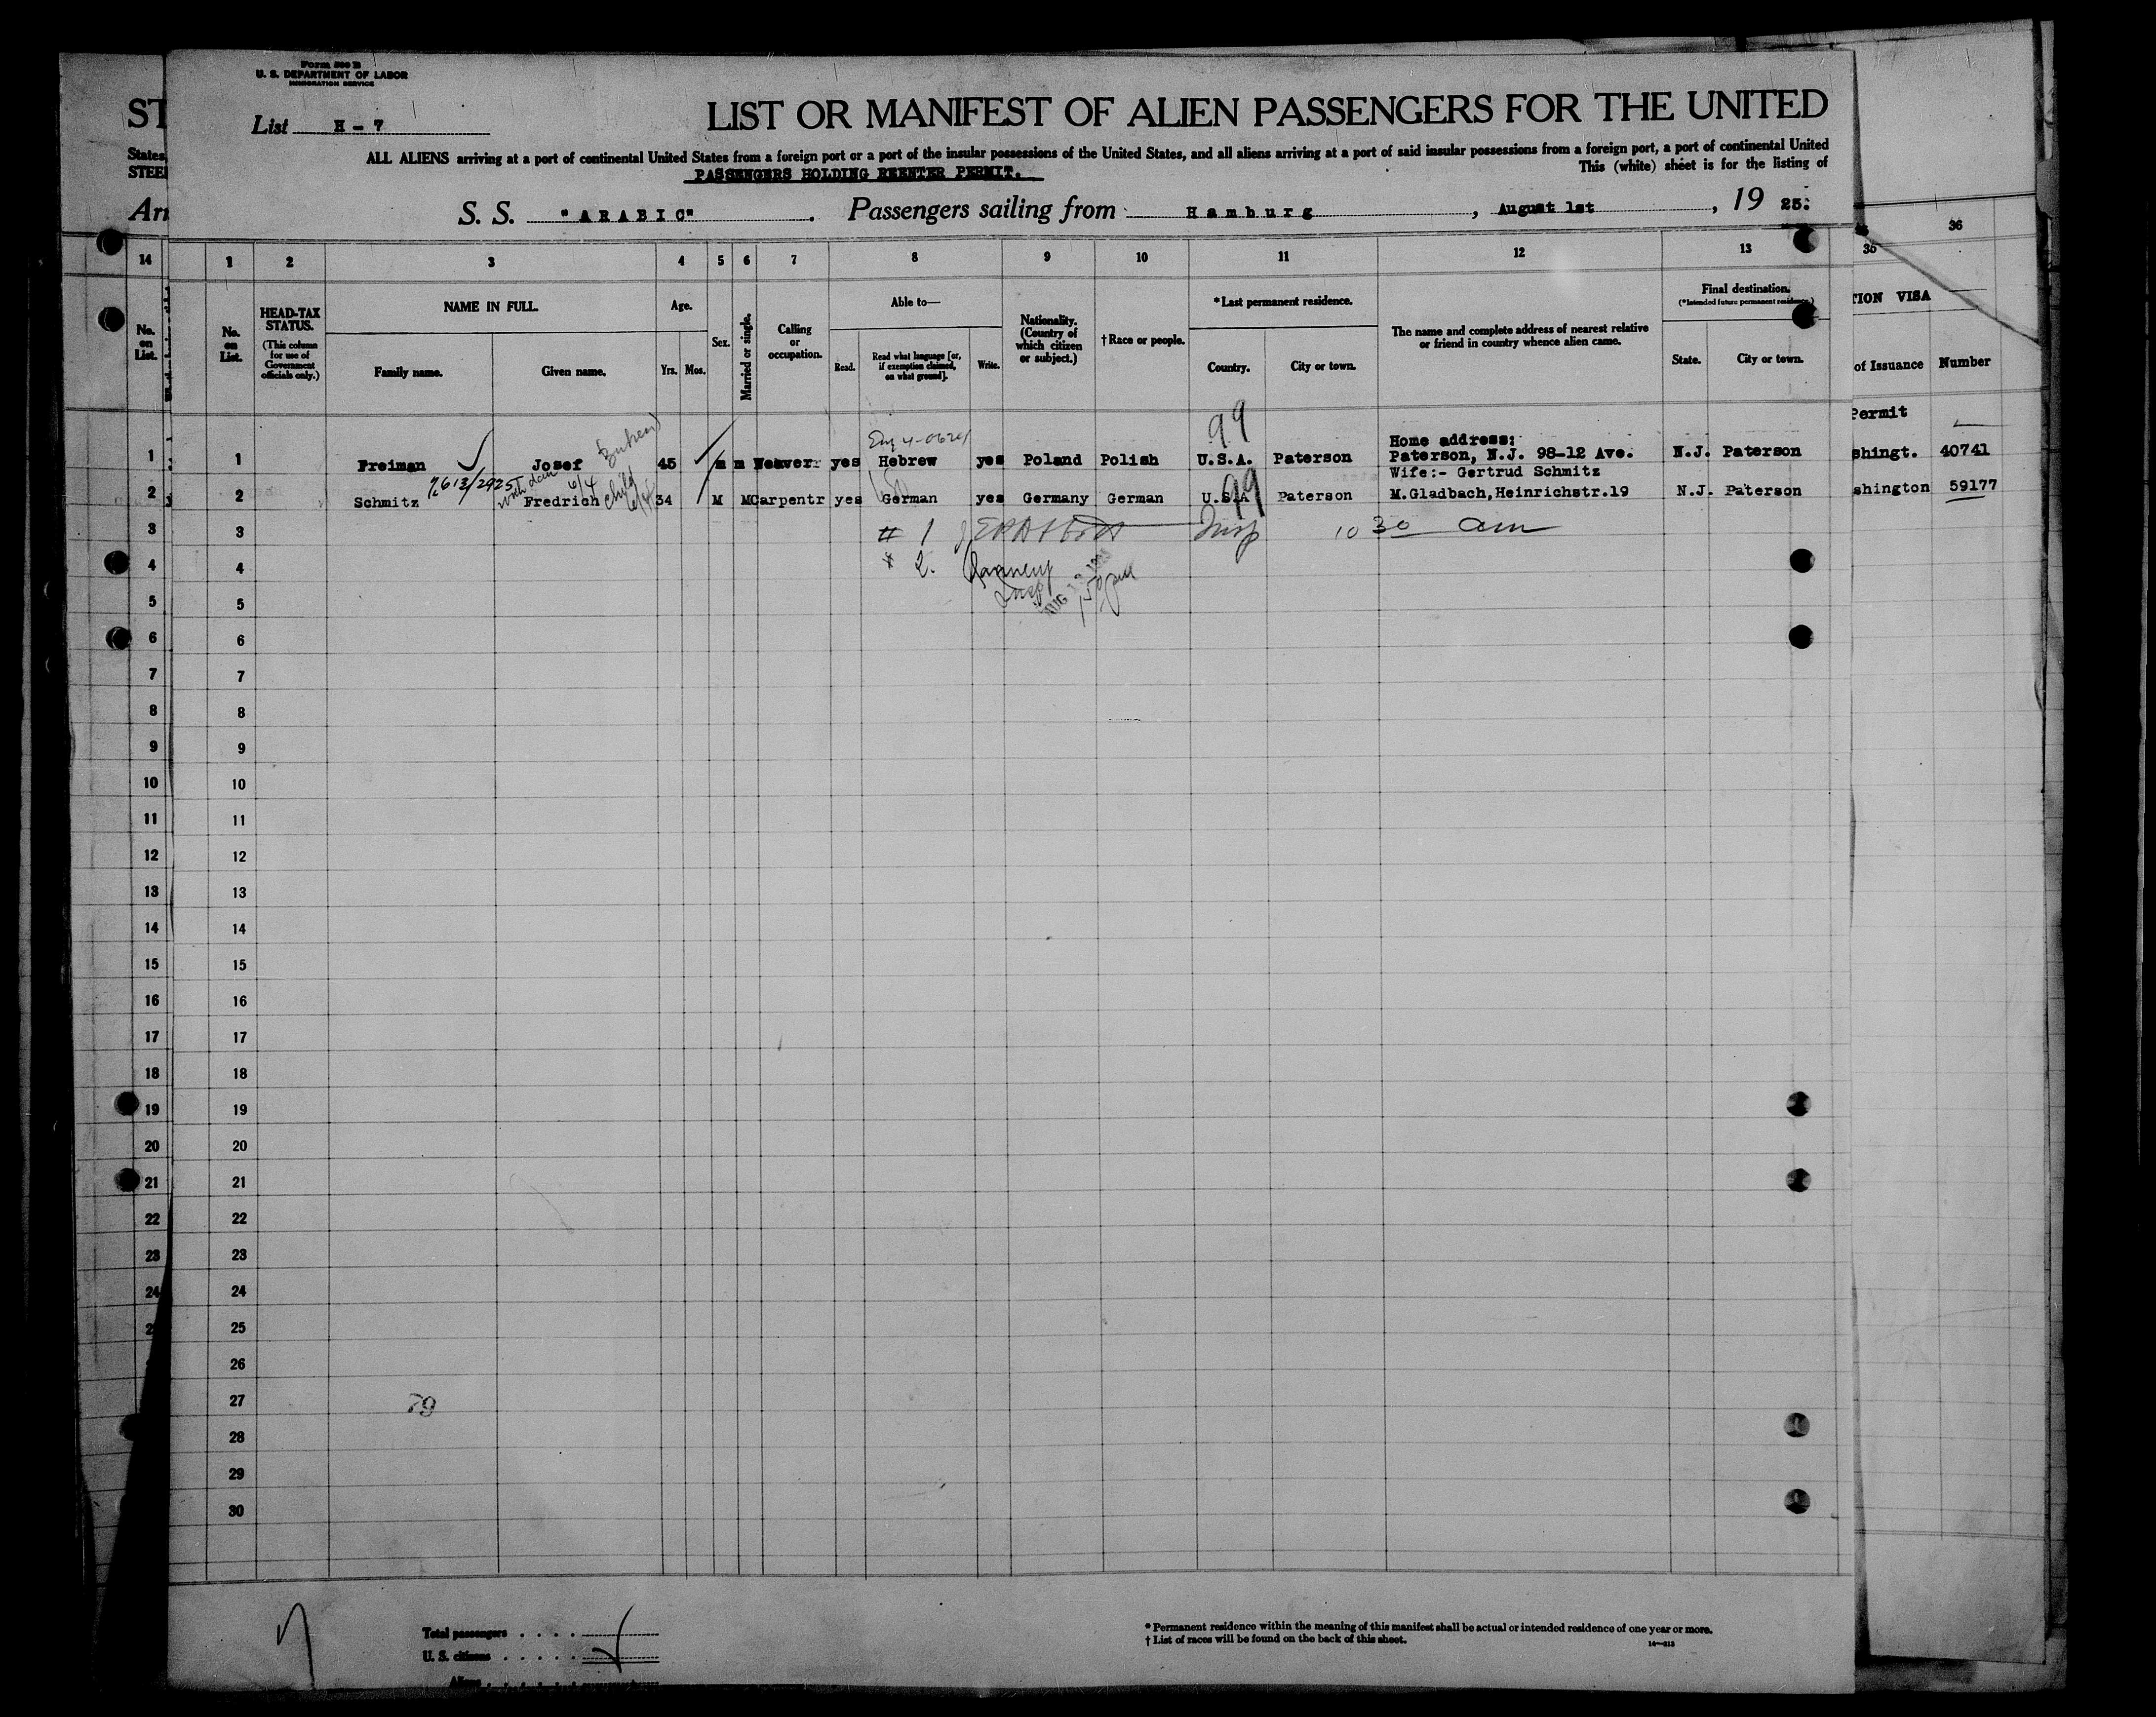 Form 500 B
U. S. DEPARTMENT OF LABOR
IMMIGRATION SERVICE
ST
List H - 7
LIST OR MANIFEST OF ALIEN PASSENGERS FOR THE UNITED
States,
ALL ALIENS arriving at a port of continental United States from a foreign port or a port of the insular possessions of the United States, and all aliens arriving at a port of said insular possessions from a foreign port, a port of continental United
STEE
PASSENGERS HOLDING REENTER PERMIT.
This (white) sheet is for the listing of
Arr
S. S. "ARABIC". Passengers sailing from Hamburg, August 1st, 1925:
14 1 2 3 4 5 6 7 8 9 10 11 12 13 35 36
No. on List.
No. on List.
HEAD-TAX STATUS.
(This column for use of Government officials only.)
NAME IN FULL.
Family name. Given name.
Age.
Yrs. Mos.
Sex.
Married or single.
Calling or occupation.
Able to—
Read. Read what language [or, if exemption claimed, on what ground]. Write.
Nationality. (Country of which citizen or subject.)
†Race or people.
*Last permanent residence.
Country. City or town.
The name and complete address of nearest relative or friend in country whence alien came.
Final destination.
(*Intended future permanent residence.)
State. City or town.
TION VISA
of Issuance Number
99
Permit
Home address:
1 1 Freiman Josef 45 m m Weaver yes Hebrew yes Poland Polish U.S.A. Paterson Paterson, N.J. 98-12 Ave. N.J. Paterson shingt. 40741
Wife:- Gertrud Schmitz
2 2 Schmitz Fredrich 34 M M Carpentr yes German yes Germany German U.S.A 99 Paterson M.Gladbach,Heinrichstr.19 N.J. Paterson shington 59177
3 3 # 1 Insp 10 30 am
4 4 # 2.
5 5
6 6
7 7
8 8
9 9
10 10
11 11
12 12
13 13
14 14
15 15
16 16
17 17
18 18
19 19
20 20
21 21
22 22
23 23
24 24
2 25
26
27 79
28
29
30
Total passengers
U. S. citizens
Aliens
* Permanent residence within the meaning of this manifest shall be actual or intended residence of one year or more.
† List of races will be found on the back of this sheet.
14—313